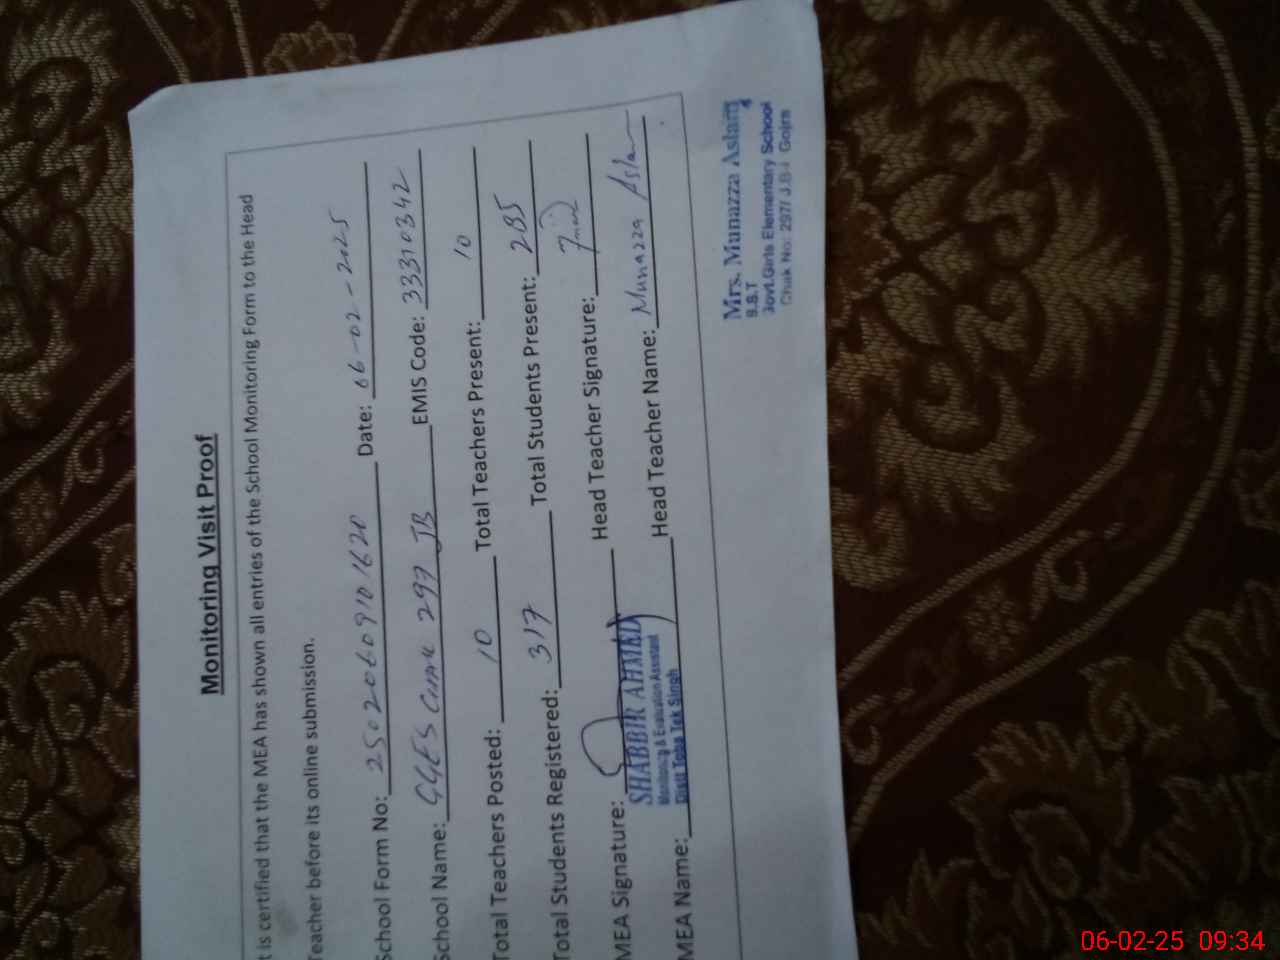 Monitoring Visit Proof
t is certified that the MEA has shown all entries of the School Monitoring Form to the Head
Teacher before its online submission.
School Form No: 25020609101620 Date: 06-02-2025
School Name: GGES 297 JB EMIS Code: 33310342
Total Teachers Posted: 10 Total Teachers Present: 10
Total Students Registered: 317 Total Students Present: 285
MEA Signature: Head Teacher Signature:
MEA Name: Head Teacher Name: Munazza Aslam
SHABBIR AHMED
Monitoring & Evaluation Assistant
Distt Toba Tek Singh
Mrs. Munazza Aslam
S.S.T
Govt.Girls Elementary School
Chak No: 297/ J.B-I Gojra
06-02-25 09:34